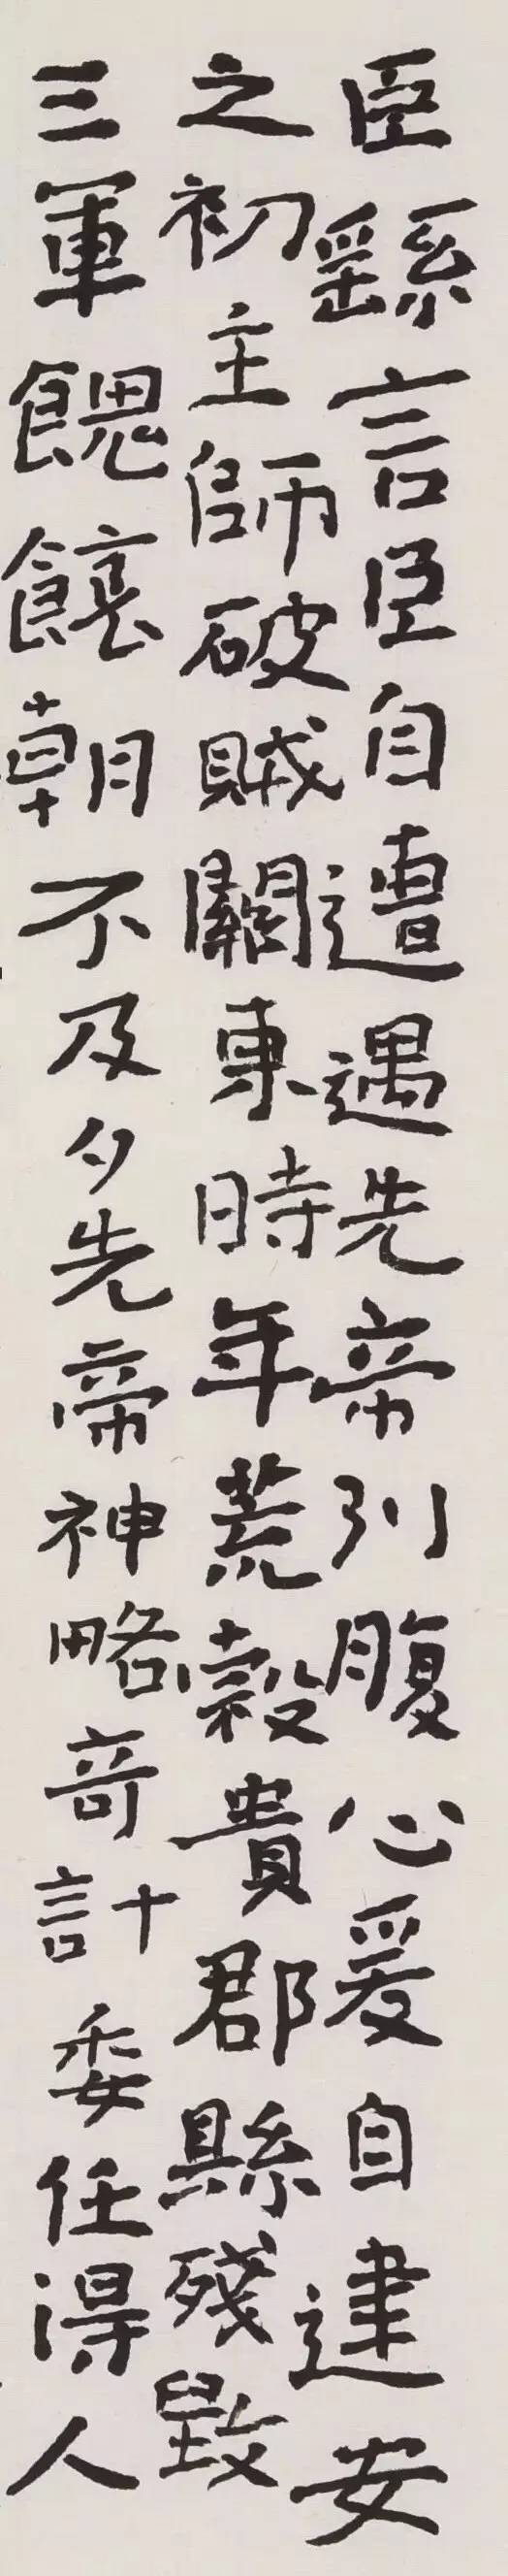 臣繇言臣自遭遇先帝列腹心爰自建安
之初主師破賊關東時年荒穀貴郡縣殘毀
三軍餽饟朝不及夕先帝神略奇計委任得人